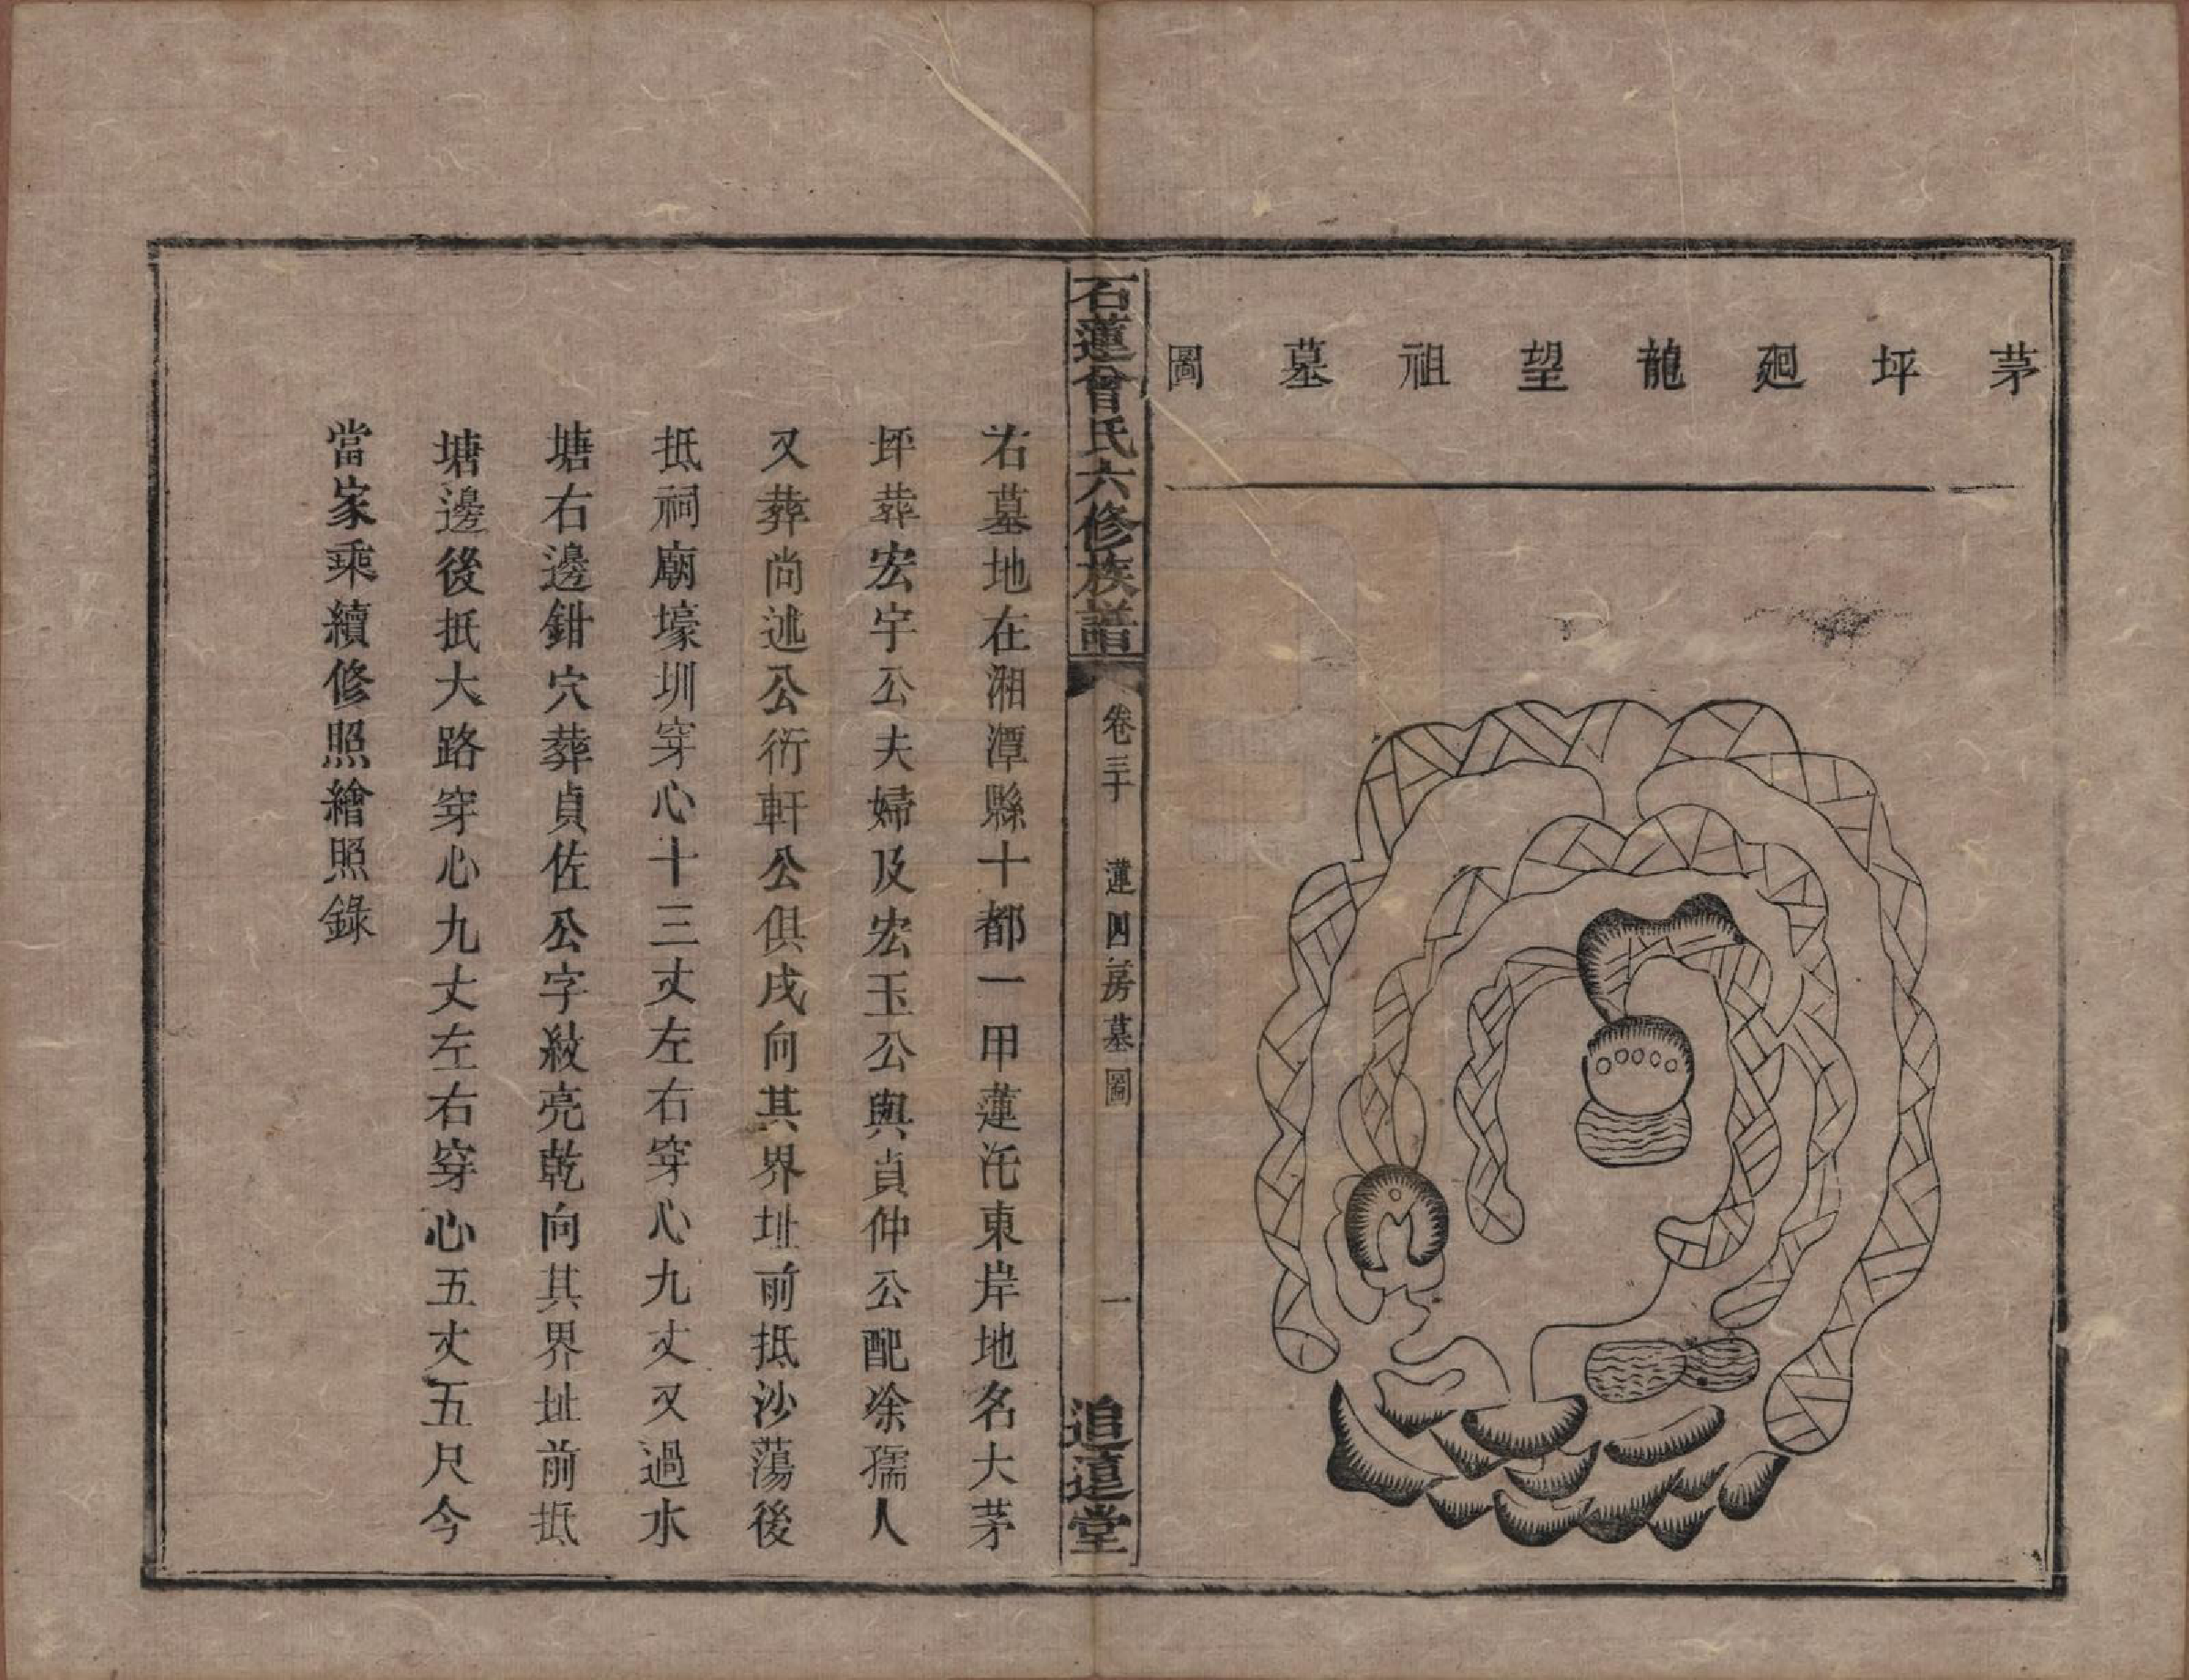 茅坪廻龍望祖墓圖
石蓮曾氏六修族譜
卷三十
蓮四房墓圖
一
追遠堂
右墓地在湘潭縣十都一甲蓮沱東岸地名大茅
坪葬宏宇公夫婦及宏玉公與貞仲公配涂孺人
又葬尚述公衍軒公俱戌向其界址前抵沙蕩後
抵祠廟壕圳穿心十三丈左右穿心九丈又過水
塘右邊鉗穴葬貞佐公字紋亮乾向其界址前抵
塘邊後抵大路穿心九丈左右穿心五丈五尺今
當家乘續修照繪照錄